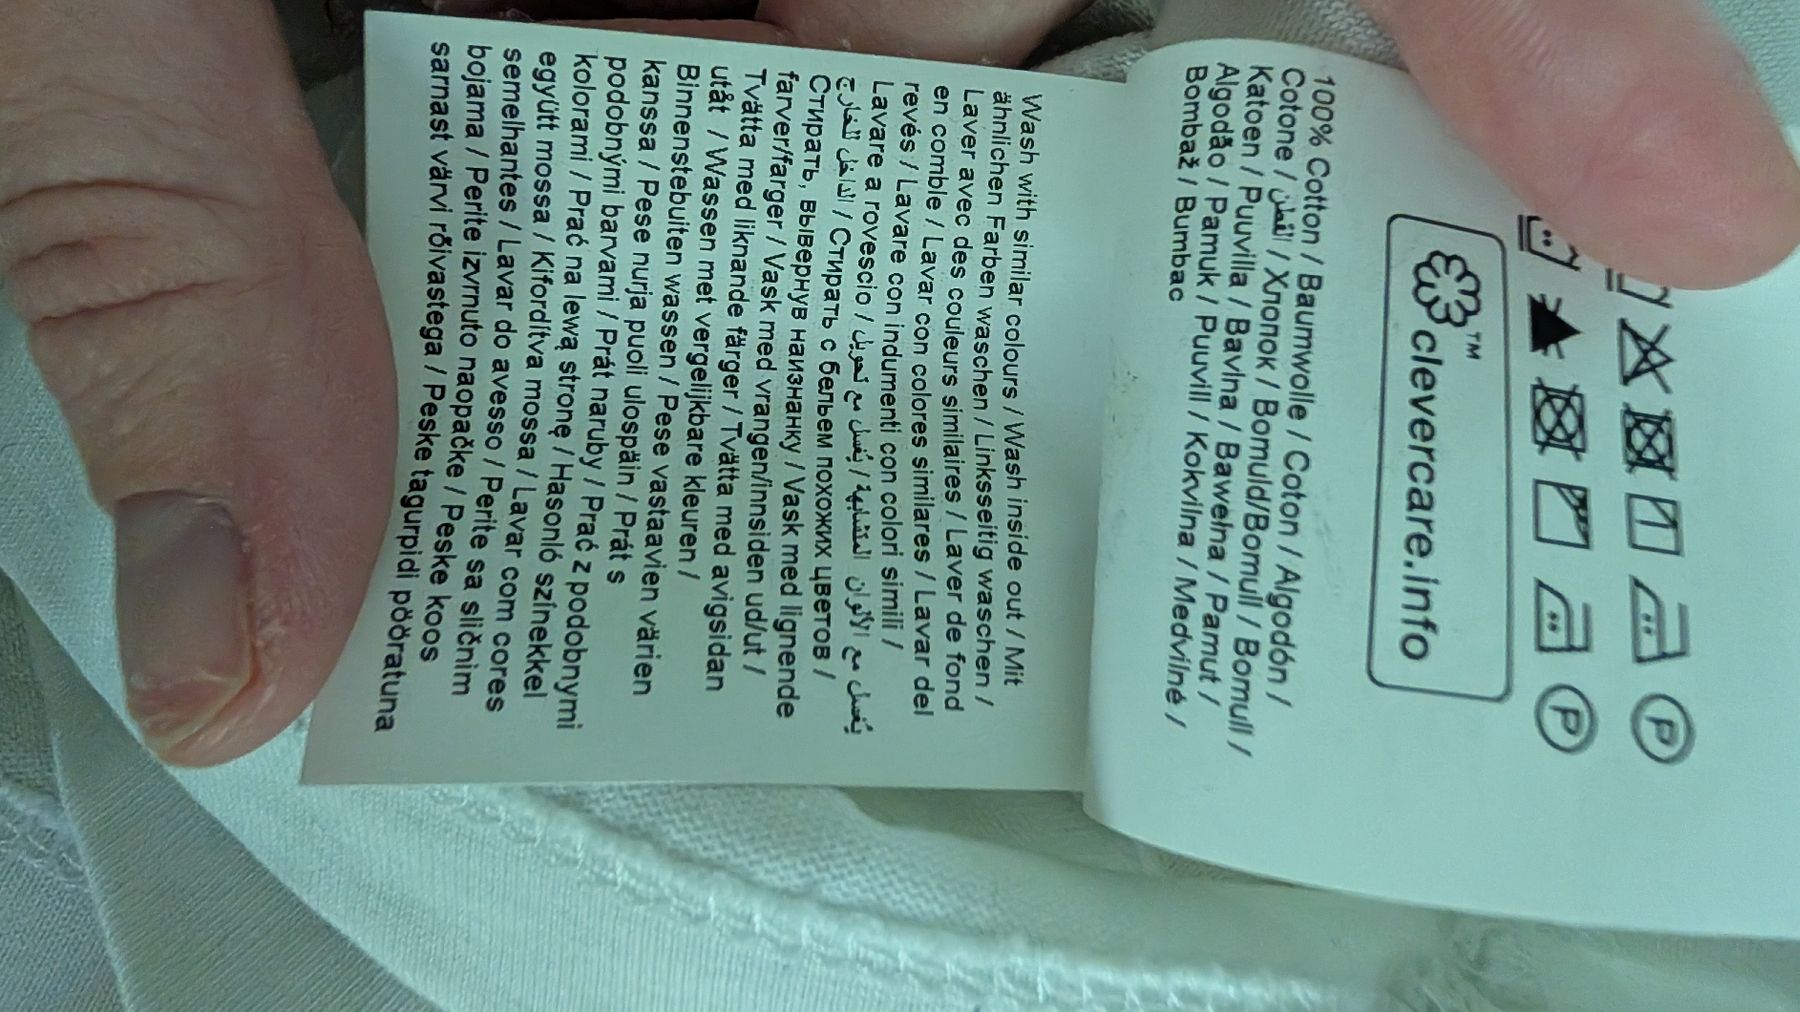 P P
™
clevercare.info
100% Cotton / Baumwolle / Coton / Algodón /
Cotone / القطن / Хлопок / Bomuld/Bomull / Bomull /
Katoen / Puuvilla / Bavlna / Bawełna / Pamut /
Algodão / Pamuk / Puuvill / Kokvilna / Medvilnė /
Bombaž / Bumbac
Wash with similar colours / Wash inside out / Mit
ähnlichen Farben waschen / Linksseitig waschen /
Laver avec des couleurs similaires / Laver de fond
en comble / Lavar con colores similares / Lavar del
revés / Lavare con indumenti con colori simili /
Lavare a rovescio / يُغسل مع الألوان المتشابهة / يُغسل مع تحويل
الداخل للخارج / Стирать с бельем похожих цветов /
Стирать, вывернув наизнанку / Vask med lignende
farver/farger / Vask med vrangen/innsiden ud/ut /
Tvätta med liknande färger / Tvätta med avigsidan
utåt / Wassen met vergelijkbare kleuren /
Binnenstebuiten wassen / Pese vastaavien värien
kanssa / Pese nurja puoli ulospäin / Prát s
podobnými barvami / Prát naruby / Prać z podobnymi
kolorami / Prać na lewą stronę / Hasonló színekkel
együtt mossa / Kifordítva mossa / Lavar com cores
semelhantes / Lavar do avesso / Perite sa sličnim
bojama / Perite izvrnuto naopačke / Peske koos
sarnast värvi rõivastega / Peske tagurpidi pööratuna